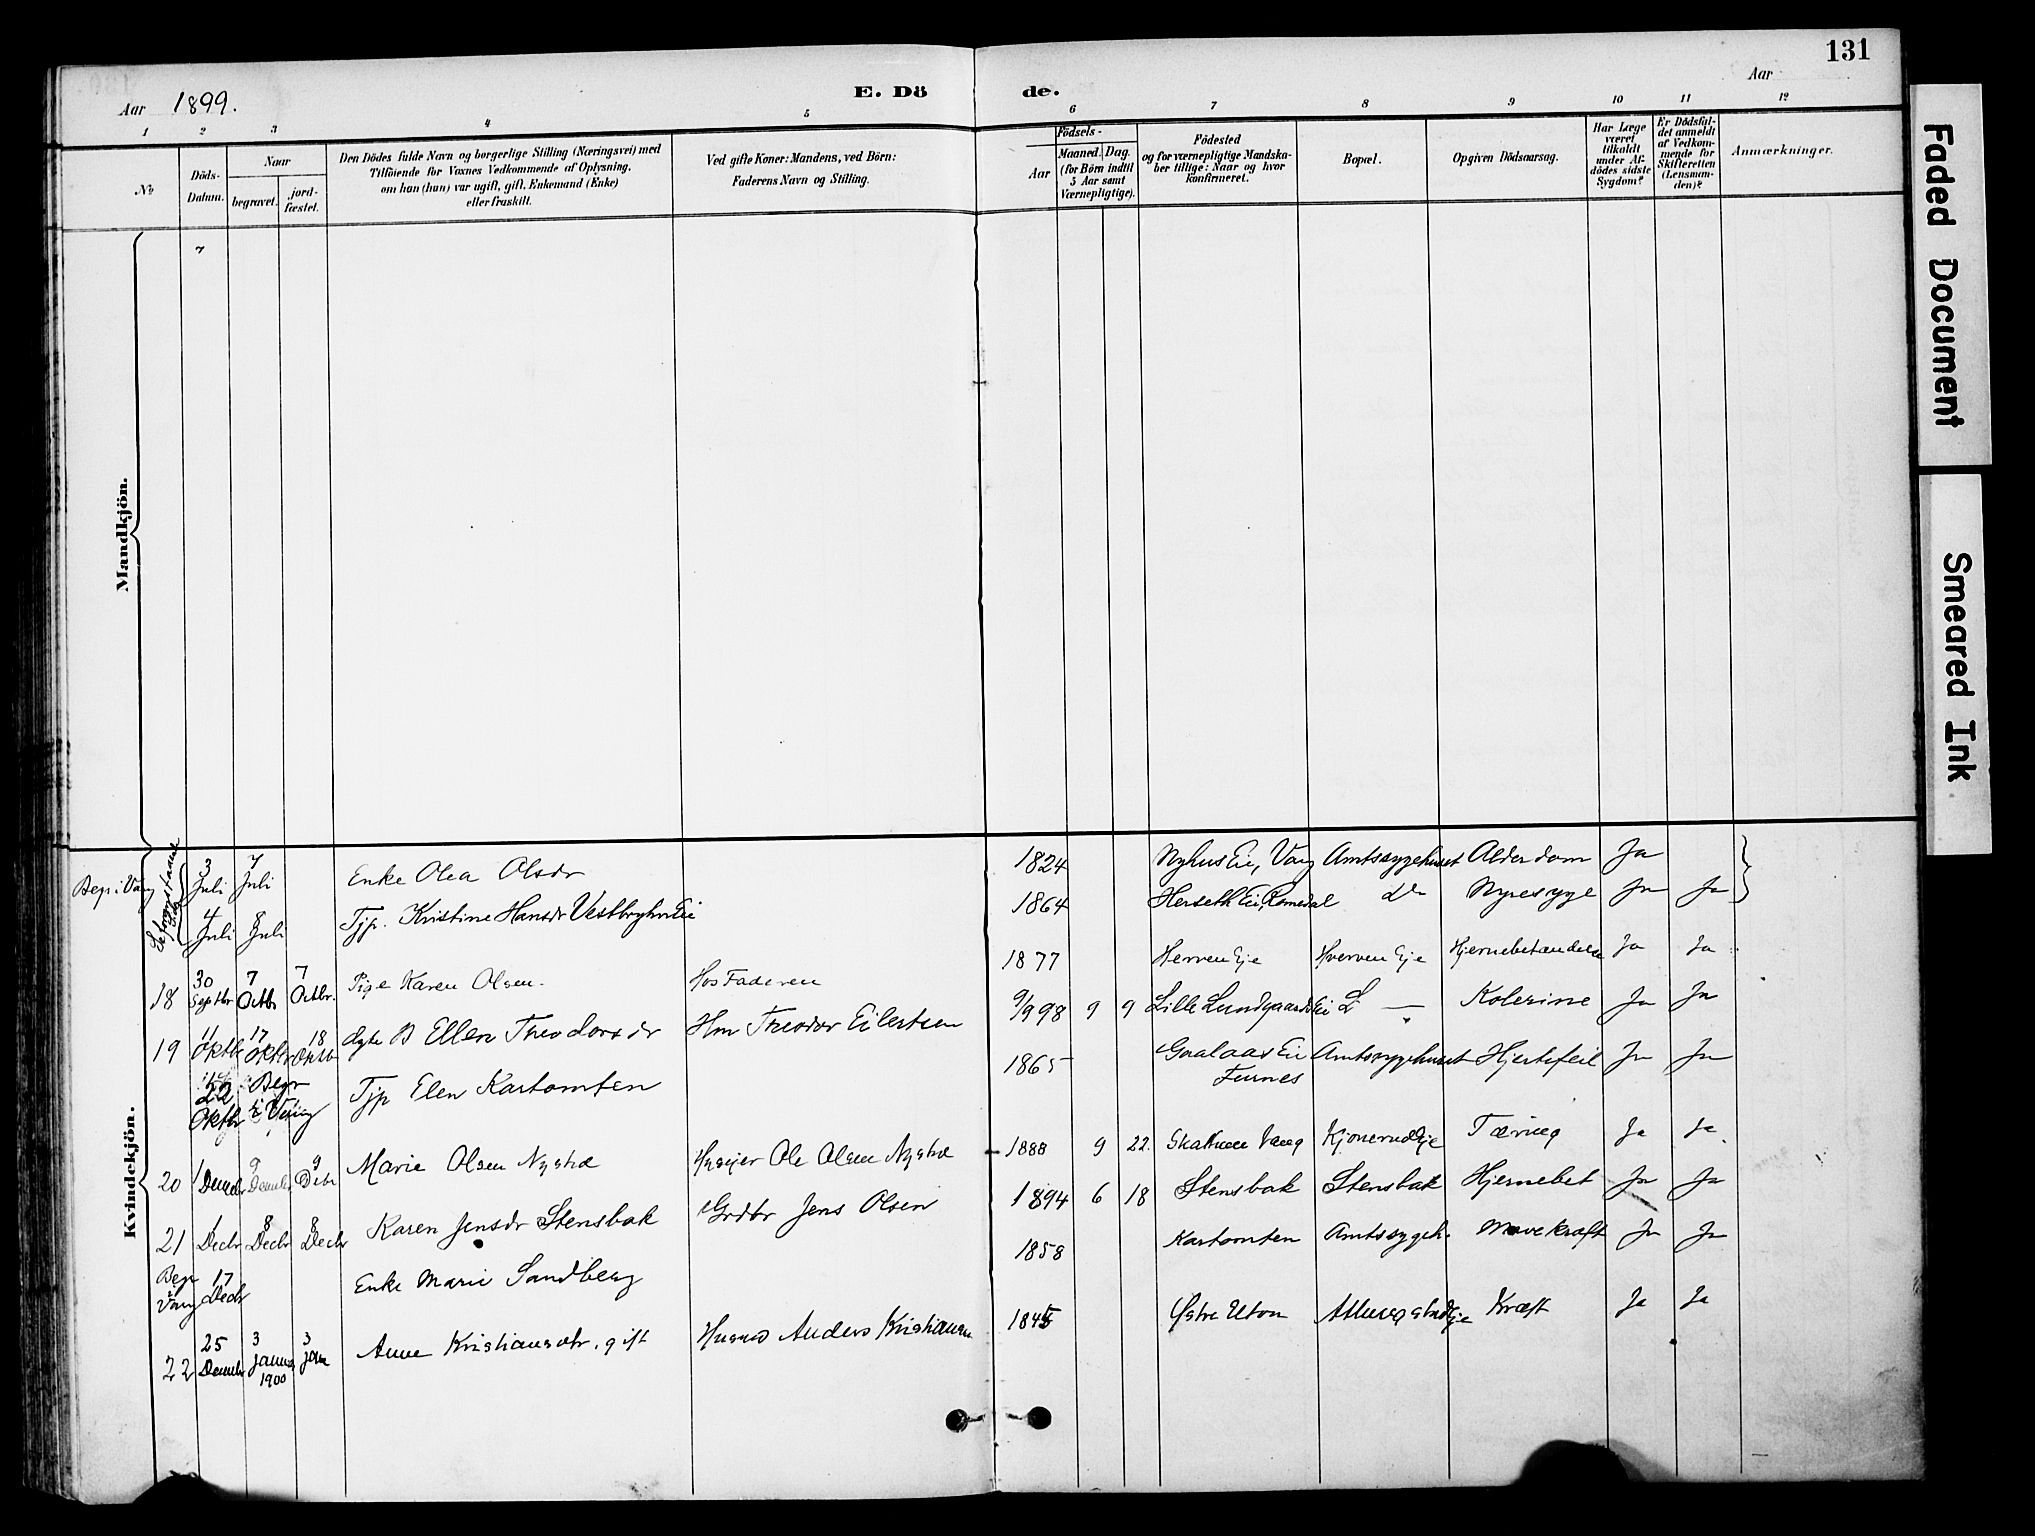 131
Aar 1899.
E. Dö de.
Aar
1 2 3 4 5 6 7 8 9 10 11 12
No
Döds-
Datum.
Naar
begravet.
jord-
fæstet.
Den Dödes fulde Navn og borgerlige Stilling (Næringsvei) med
Tilföiende for Voxnes Vedkommende af Oplysning,
om han (hun) var ugift, gift, Enkemand (Enke)
eller fraskilt.
Ved gifte Koner: Mandens, ved Börn:
Faderens Navn og Stilling.
Födsels-
Aar
Maaned. Dag.
(for Börn indtil
5 Aar samt
Værnepligtige).
Födested
og for værnepligtige Mandska-
ber tillige: Naar og hvor
konfirmeret.
Bopæl.
Opgiven Dödsaarsag.
Har Læge
været
tilkaldt
under Af-
dödes sidste
Sygdom?
Er Dödsfal-
det anmeldt
af Vedkom-
mende for
Skifteretten
(Lensman-
den)?
Anmærkninger.
Mandkjön.
Kvindekjön.
Begr i Vang 3 Juli 7 Juli Enke Olea Olsdr 1824 Nyhus Eie, Vang Amtssygehuset Alderdom Ja
4 Juli 8 Juli Tjp. Kristine Hansdr Vestby Eie 1864 Herseth Ei, Romedal do Nyresyge Ja Ja
18 30 Septbr 7 Octbr 7 Octbr. Pige Karen Olsen. Hos Faderen 1877 Herven Eje Hverven Eje Hjernebetændelse Ja Ja
19 11 Oktbr 17 Oktbr 18 Oktbr dgtr Ellen Theodorsdr Hm Theodor Eilertsen 9/9 98 9 9 Lille Lundgaards Ei L — Kolerine Ja Ja
22 Oktbr Begr i Vang Tjp Elen Kartomten 1865 Gaalaas Ei Furnes Amtssygehuset Hjertefeil Ja Ja
20 1 Decmbr 9 Decmbr 9 Decbr Marie Olsen Nystu Huseier Ole Olsen Nystu 1888 9 22. Skattum Vang Kjonerud Eje Tæring Ja Ja.
21 1 Decbr 8 Decbr 8 Decbr Karen Jensdr Stensbak Grdbr Jens Olsen 1894 6 18 Stensbak Stensbak Hjernebet Ja Ja
Begr i Vang 17 Decbr Enke Marie Sandberg 1858 Kartomten Amtssygeh. Mavekræft Ja Ja
22 25 Decmbr 3 januar 1900 3 jan Anne Kristiansdtr. gift Husmd Anders Kristiansen 1845 Østre Elton Kræft Ja Ja
Faded Document
Smeared Ink